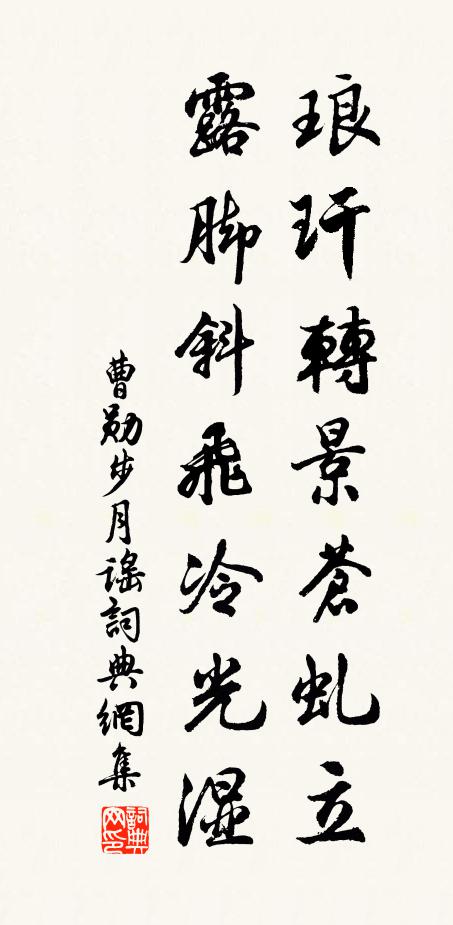 琅玕轉景蒼虬立
露脚斜飛冷光湿
曹勛步月謠詞典網集
詞典网印